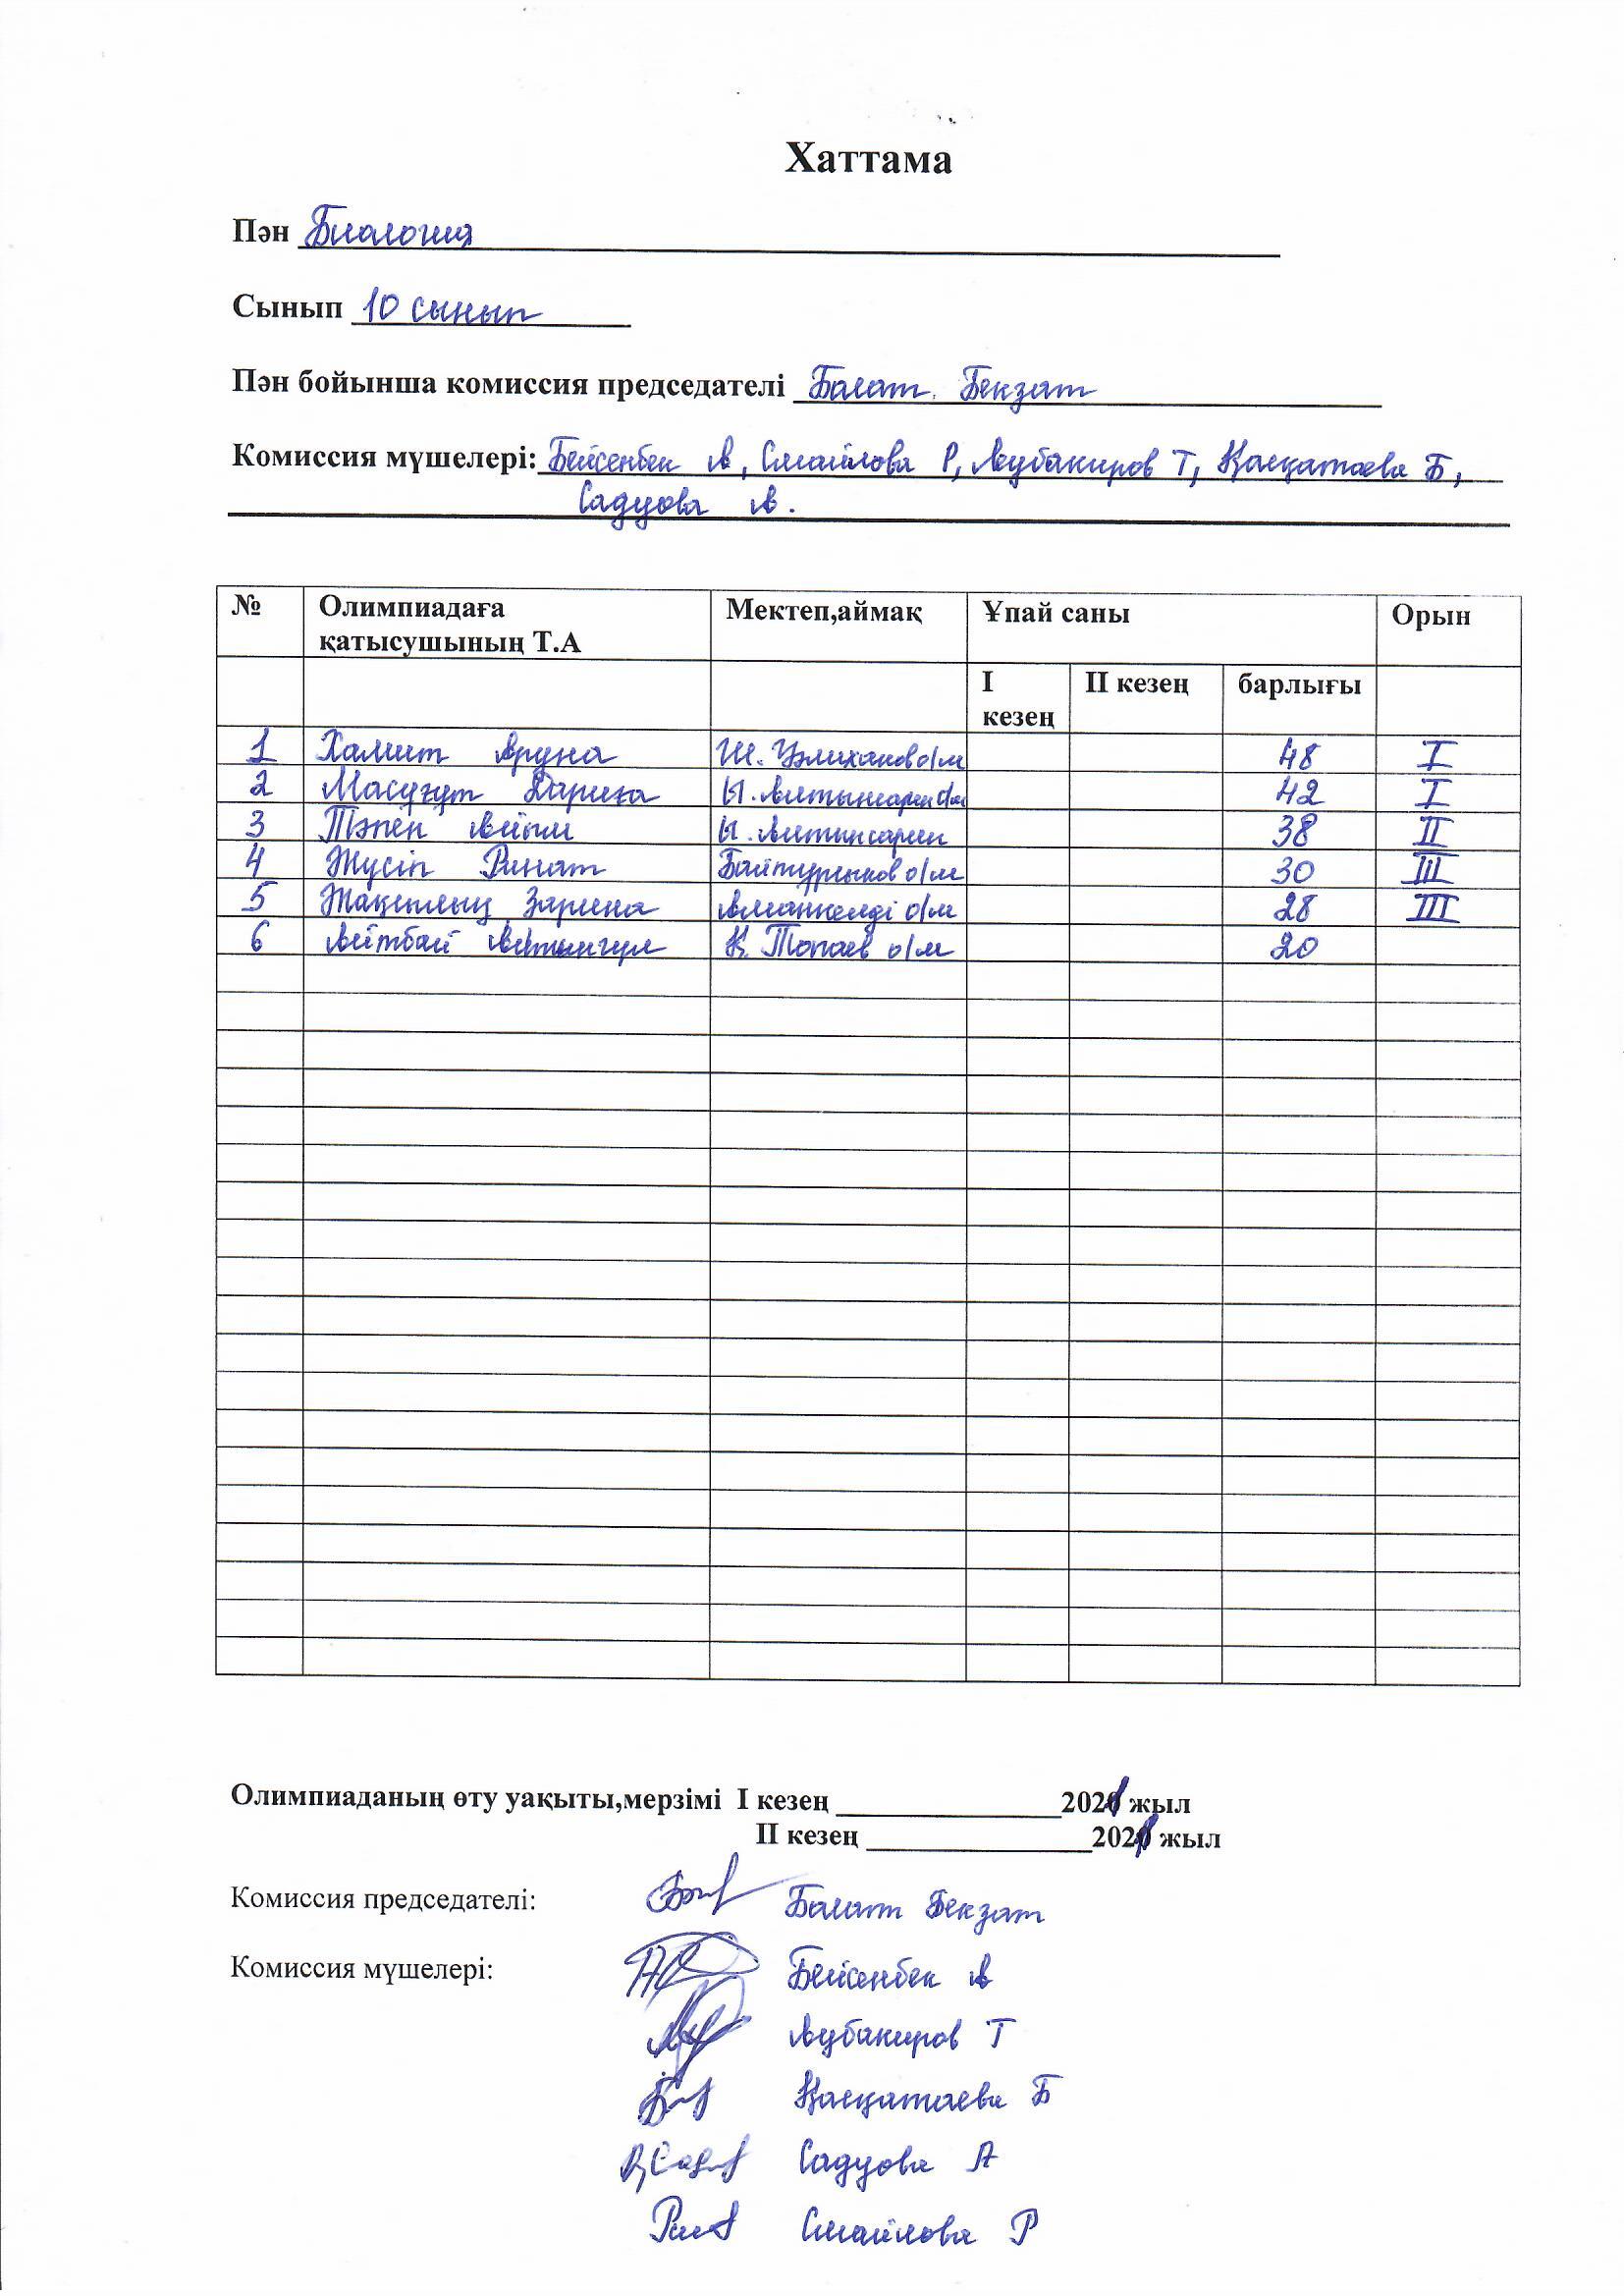 Хаттама
Пән Биология
Сынып 10 сынып
Пән бойынша комиссия председателі Балат Бекзат
Комиссия мүшелері: Бейсенбек А, Смайлова Р, Аубакиров Т, Қасқатаева Б,
Садуова А.
№ Олимпиадаға қатысушының Т.А Мектеп,аймақ Ұпай саны Орын
I кезең II кезең барлығы
1 Хамит Аруна Ш. Уәлиханов о/м 48 I
2 Масғұт Дариға Ы. Алтынсарин о/м 42 I
3 Тәпен Айым Ы. Алтынсарин 38 II
4 Жүсіп Ринат Байтұрсынов о/м 30 III
5 Жақсылық Зарина Аманкелді о/м 28 III
6 Айтбай Алтынгүл Қ. Топаев о/м 20
Олимпиаданың өту уақыты,мерзімі I кезең 2021 жыл
II кезең 2021 жыл
Комиссия председателі: Балат Бекзат
Комиссия мүшелері: Бейсенбек А
Аубакиров Т
Қасқатаева Б
Садуова А
Смайлова Р